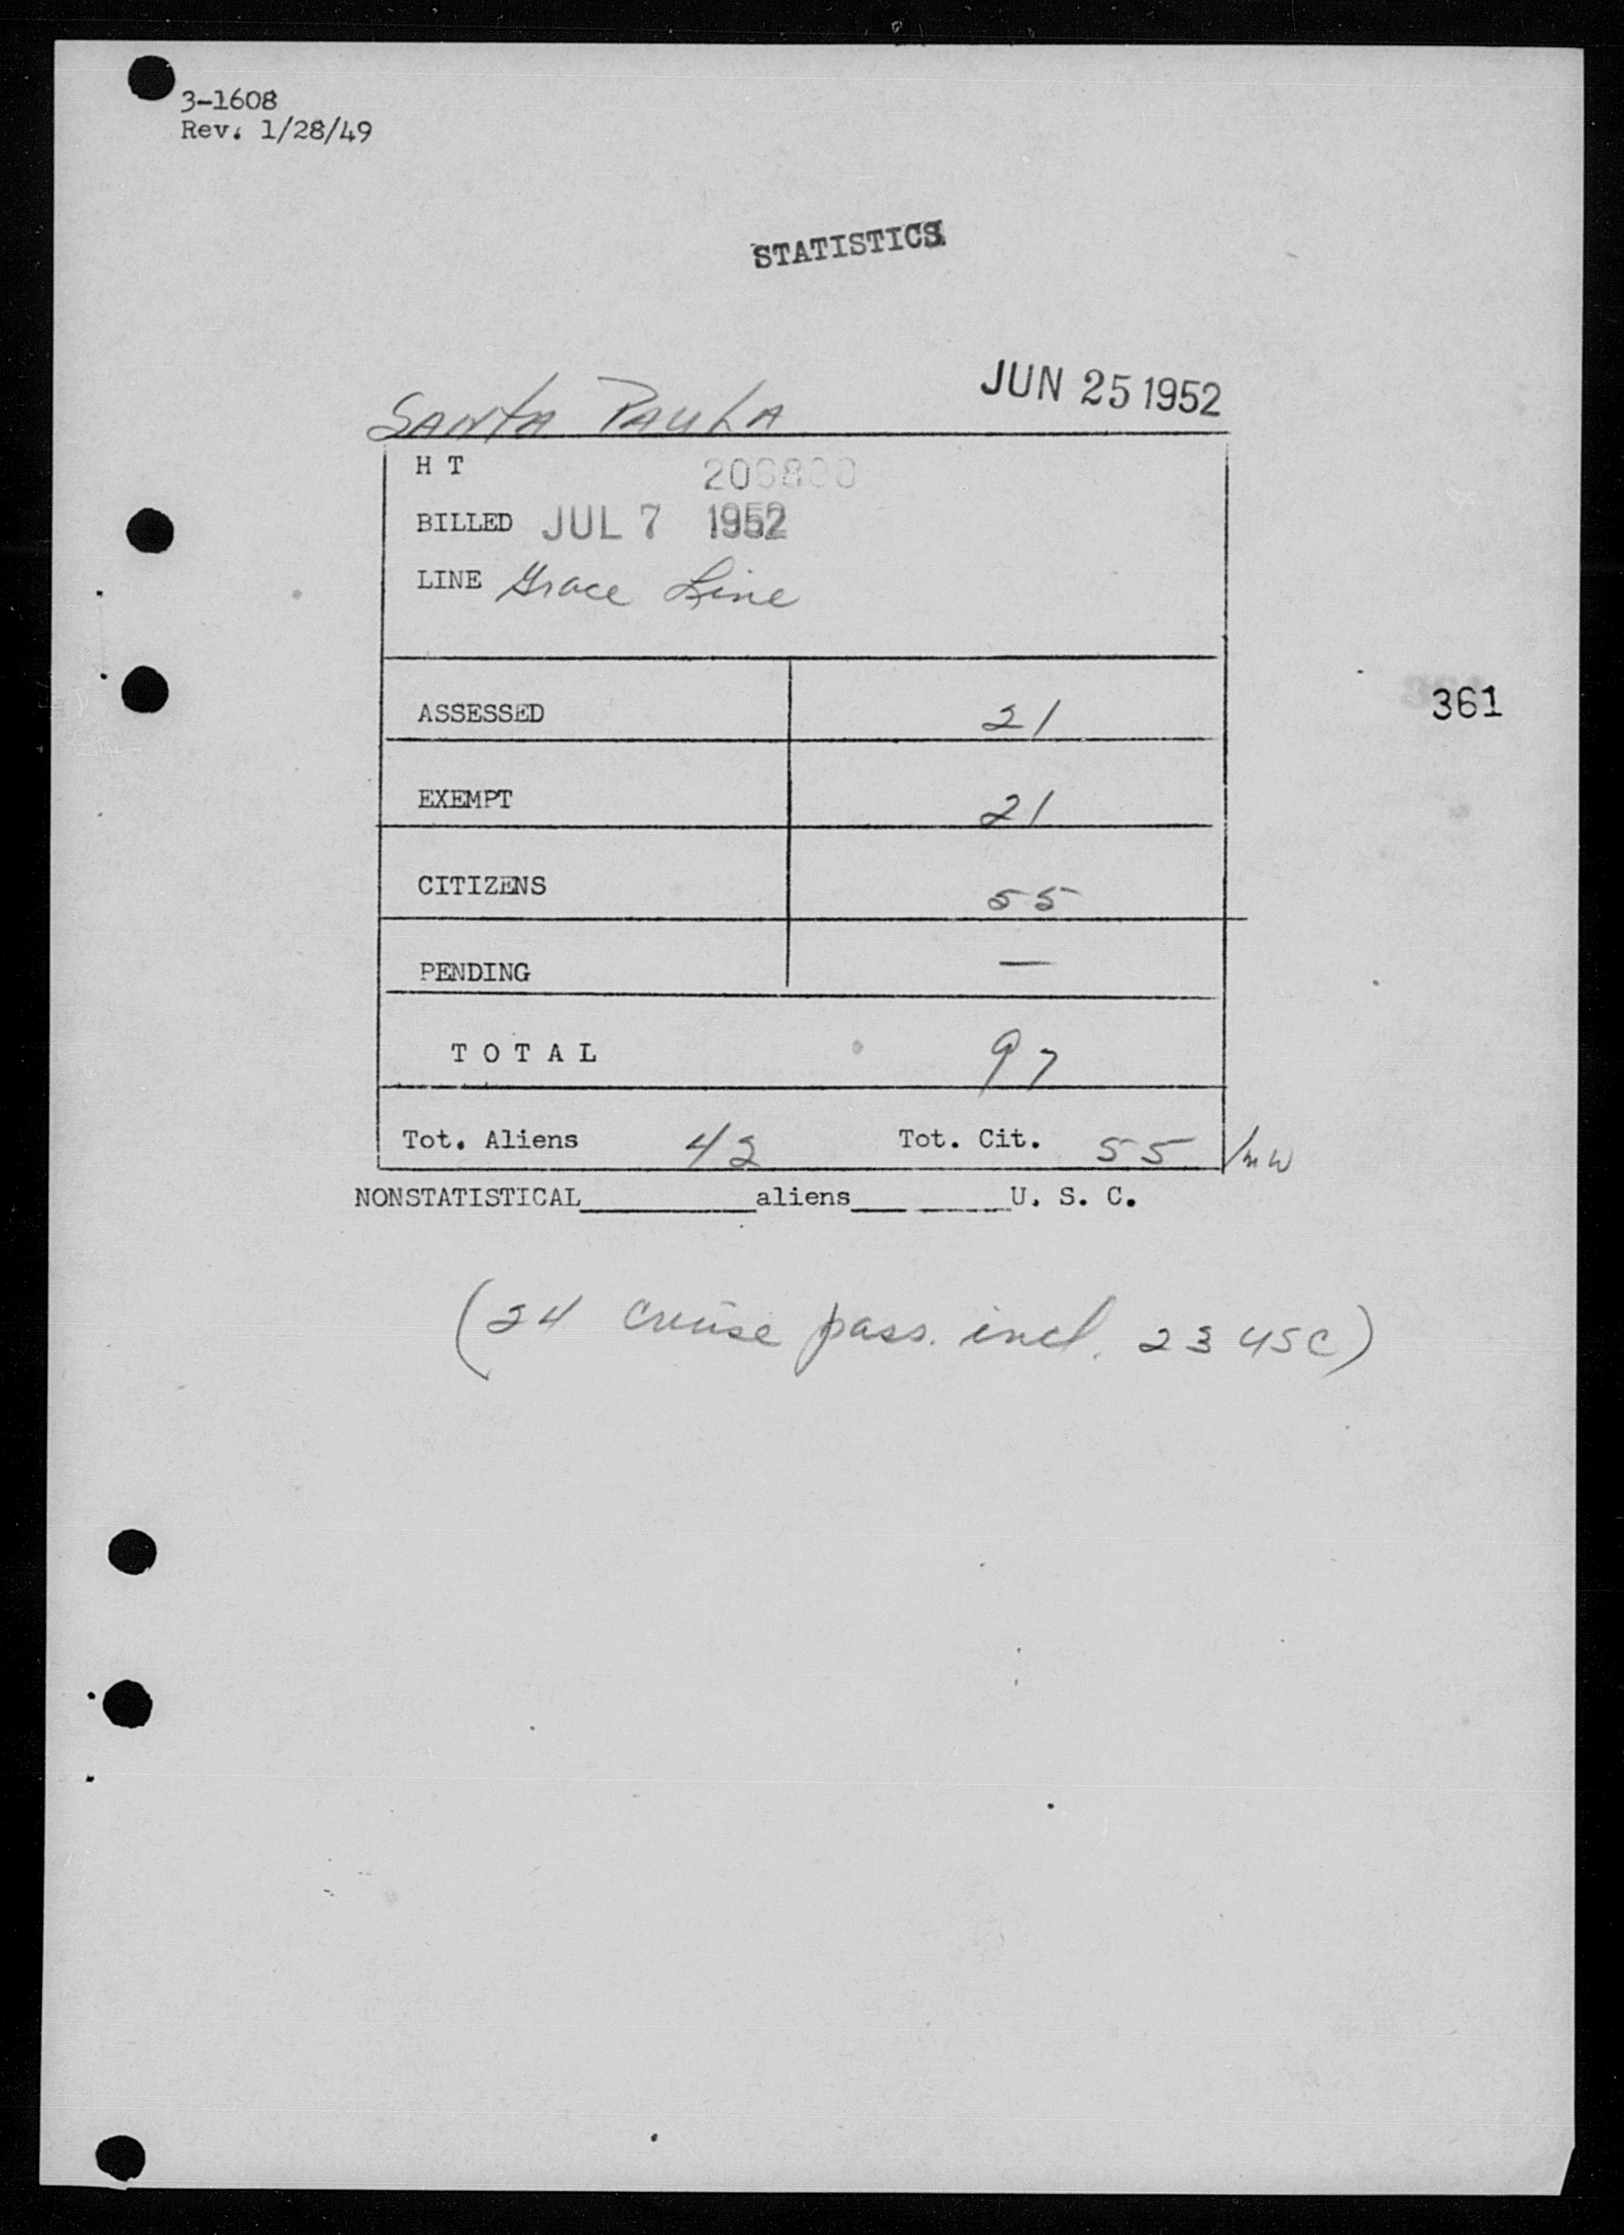 3-1608
Rev. 1/28/49
STATISTICS
SANTA PAULA JUN 25 1952
H T
BILLED JUL 7 1952
LINE Grace Line
ASSESSED 21
361
EXEMPT 21
CITIZENS 55
PENDING —
T O T A L 97
Tot. Aliens 42 Tot. Cit. 55 /mw
NONSTATISTICAL__________aliens__________U. S. C.
(24 cruise pass. incl. 23 USC)